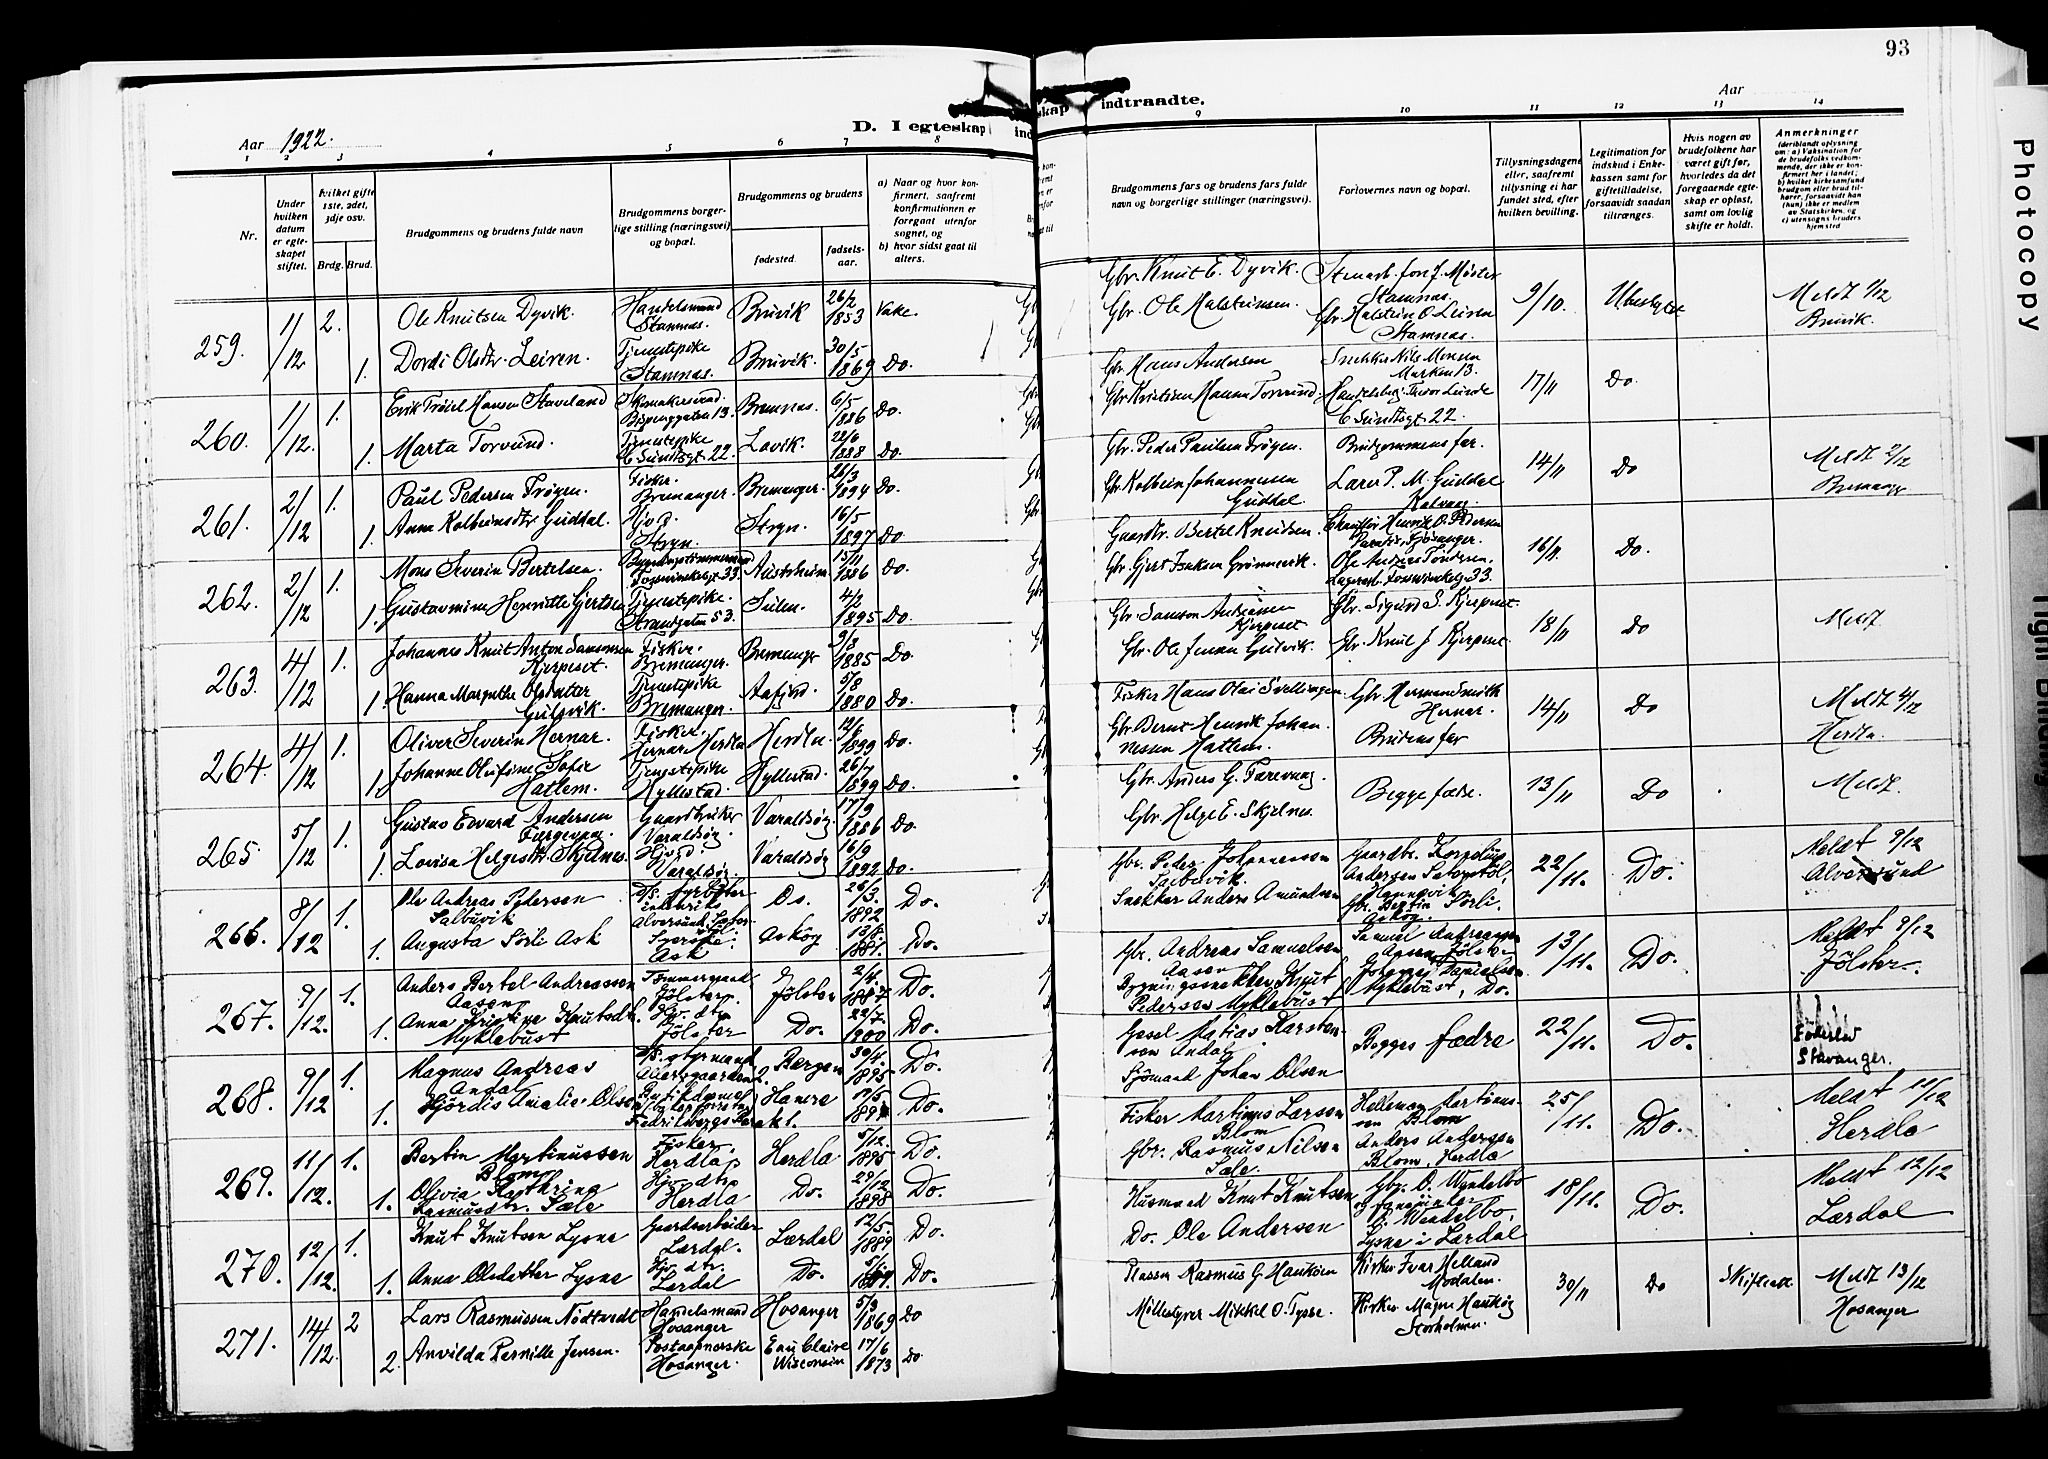 93
Photocopy
Tight Binding
Aar 1922.
D. I egteskap
indtraadte.
Aar
1 2 3 4 5 6 7 8
9 10 11 12 13 14
Nr.
Under hvilken datum er egteskapet stiftet.
hvilket gifte 1ste, 2det, 3dje osv.
Brdg. Brud.
Brudgommens og brudens fulde navn
Brudgommens borgerlige stilling (næringsvei) og bopæl.
Brudgommens og brudens
fødested.
fødselsaar.
a) Naar og hvor konfirmert, saafremt konfirmationen er foregaat utenfor sognet, og
b) hvor sidst gaat til alters.
Brudgommens fars og brudens fars fulde navn og borgerlige stillinger (næringsvei).
Forlovernes navn og bopæl.
Tillysningsdagene eller, saafremt tillysning ei har fundet sted, efter hvilken bevilling.
Legitimation for indskud i Enkekassen samt for giftetilladelse, forsaavidt saadan tiltrænges.
Hvis nogen av brudefolkene har været gift før, hvorledes da det foregaaende egteskap er opløst, samt om lovlig skifte er holdt.
Anmerkninger
(deriblandt oplysning om: a) Vaksination for de brudefolks vedkommende, der ikke er konfirmert her i landet; b) hvilket kirkesamfund brudgom eller brud tilhører, forsaavidt han (hun) ikke er medlem av Statskirken, og c) utensogns bruders hjemsted
259. 1/12 2. Ole Knutsen Dyvik. Handelsmand Stamnes. Bruvik 26/2 1853 Vake.
1. Dordi Olsdtr. Leiren. Tjenestepike Stamnes. Bruvik. 30/5 1869 Do.
Gbr. Knut E. Dyvik.
Gbr. Ole Halsteinsen.
Gbr. Halstein O. Leiren Stamnes.
9/10.
Meldt 1/12 Bruvik.
260. 1/12. 1. Erik Trøiel Hansen Staveland Bremnes. 6/5 1886 Do.
1. Marta Torvund. Tjenestepike C Sundtsgt. 22. Lavik. 22/6 1888 Do.
Gbr. Hans Andersen
Snekker Nils Monsen Marken 13.
Gbr. Kristian Hansen Torvund
C Sundtsgt 22.
17/11 Do
261. 2/12 1. Paul Pedersen Frøyen. Fisker. Bremanger. Bremanger. 26/3 1894 Do.
1. Anna Kolbeinsdtr Guddal. Hjvd. Stryn. Stryn. 16/5 1897 Do
Gbr. Peder Paulsen Frøyen. Brudgommens far.
Gbr. Kolbein Johannesen Guddal Lærer P. M. Guddal Kalvaag.
14/11 Do
Meldt 2/12 Bremanger
262. 2/12 1. Mons Severin Bertelsen. Austrheim 15/11 1886 Do.
1. Gustavmine Henriette Gjertsen Tjenestepike. Strandgaten 53. Sulen. 4/2 1895 Do.
Gaardbr. Bertel Knudsen. Chauffør Henrik O. Pedersen
Gbr. Gjert Isaksen Grønnevik. Ole Andreas Tondersen.
16/11. Do.
263. 4/12 1. Johannes Knut Anton Samsonsen Kjerpeset. Fisker. Bremanger. Bremanger 9/8 1885 Do.
1. Hanna Margrethe Olsdatter Gulsvik. Tjenestepike Bremanger. Aafjord. 5/8 1880 Do.
Gbr. Samson Andreasen Kjerpeset Gbr. Sigurd S. Kjerpeset.
Gbr. Ole Jensen Gulsvik. Gbr. Knut J Kjerpeset.
18/11 Do Meldt.
264. 4/12 1. Oliver Severin Hernar. Fisker. Hernar. Herdla Herdla. 12/6 1899 Do.
1. Johanne Olufine Sofie Hatlem. Tjenestepike Hyllestad. Hyllestad. 26/7 1899 Do.
Fisker Hans Olai Svellingen. Gbr. Herman Smith Hernar.
Gbr Bernt Henrik Johannessen Hatlem. Brudens far
14/11 Do Meldt 4/12 Herdla.
265. 5/12 1. Gustav Edvard Andersen Færgevaag. Gaardbruker Varaldsøy. Varaldsøy. 17/9 1886 Do.
1. Lovisa Helgesdtr. Skjelnes. Hjvd. Varaldsøy. Varaldsøy 16/9 1892 Do.
Gbr. Anders G. Færevaag.
Gbr. Helge E. Skjelnes. Begge fædre.
13/11 Do Meldt.
266. 8/12 1. Ole Andreas Pedersen Salbuvik Os. 26/3. 1892 Do.
1. Augusta Sörli Ask Syerske. Ask Asköy 1881. Do.
Gbr. Peder Johannesson Salbuvik.
Snekker Anders Amundsen
Gbr. Bertin Sörli. Asköy.
22/11. Do. Meldt 9/12 Alversund
267. 9/12. 1. Anders Bertel Andreassen Aasen Tömmermand Jölster. Jölster 2/4. 1887 Do.
1. Anna Kristine Knutsdtr. Myklebust Hjv. dtr. Jölster Do. 22/7. 1900 Do.
Gbr. Andreas Samuelsen Aasen Samuel Andreassen Aasen, Jölster
Bygningssnekker Knut Pedersen Myklebust Johannes Danielsen Myklebust, Do.
13/11. Do. Meldt 9/12 Jölster.
268. 9/12 1. Magnus Andreas Andal D/S. styrmand Bergen 30/4. 1895 Do.
1. Hjördis Amalie Olsen Do.
Begges fædre
Sjömand Johan Olsen
22/11. Do. Stavanger.
269. 11/12. 1. Bertin Martinussen Blom Fisker Herdla Herdla 5/12. 1895 Do.
1. Olivia Kathrina Rasmusdtr. Sæle Hjv. dtr. Herdla Do. 29/12 1898 Do.
Fisker Martinus Larsen Blom Helleman Martinussen Blom
Gbr. Rasmus Nilsen Sæle. Anders Andersen Blom, Herdla
25/11. Do. Meldt 11/12 Herdla
270. 12/12. 1. Knut Knutsen Lysne Gaardsarbeider Lærdal. Lærdal 12/5. 1889 Do.
1. Anna Olsdatter Lysne Hjv. dtr. Lærdal Do. Do.
Husmand Knut Knutsen
Do. Ole Andersen
Lysne i Lærdal
18/11. Do. Meldt 12/12 Lærdal
271. 14/12. 2 Lars Rasmussen Nödtvedt Handelsmand Hosanger Hosanger 5/3 1869 Do
2. Anvilda Pernille Jensen. Postaapnerske Hosanger. Eau Claire Wisconsin 17/6 1873 Do.
Rasmus G. Hankøen Kirker Ivar Helland Modalen.
Mikkel O. Tysse. Kirker Magne Haukøy Storholmen.
30/11 Do Skifteatt. Meldt 13/12 Hosanger